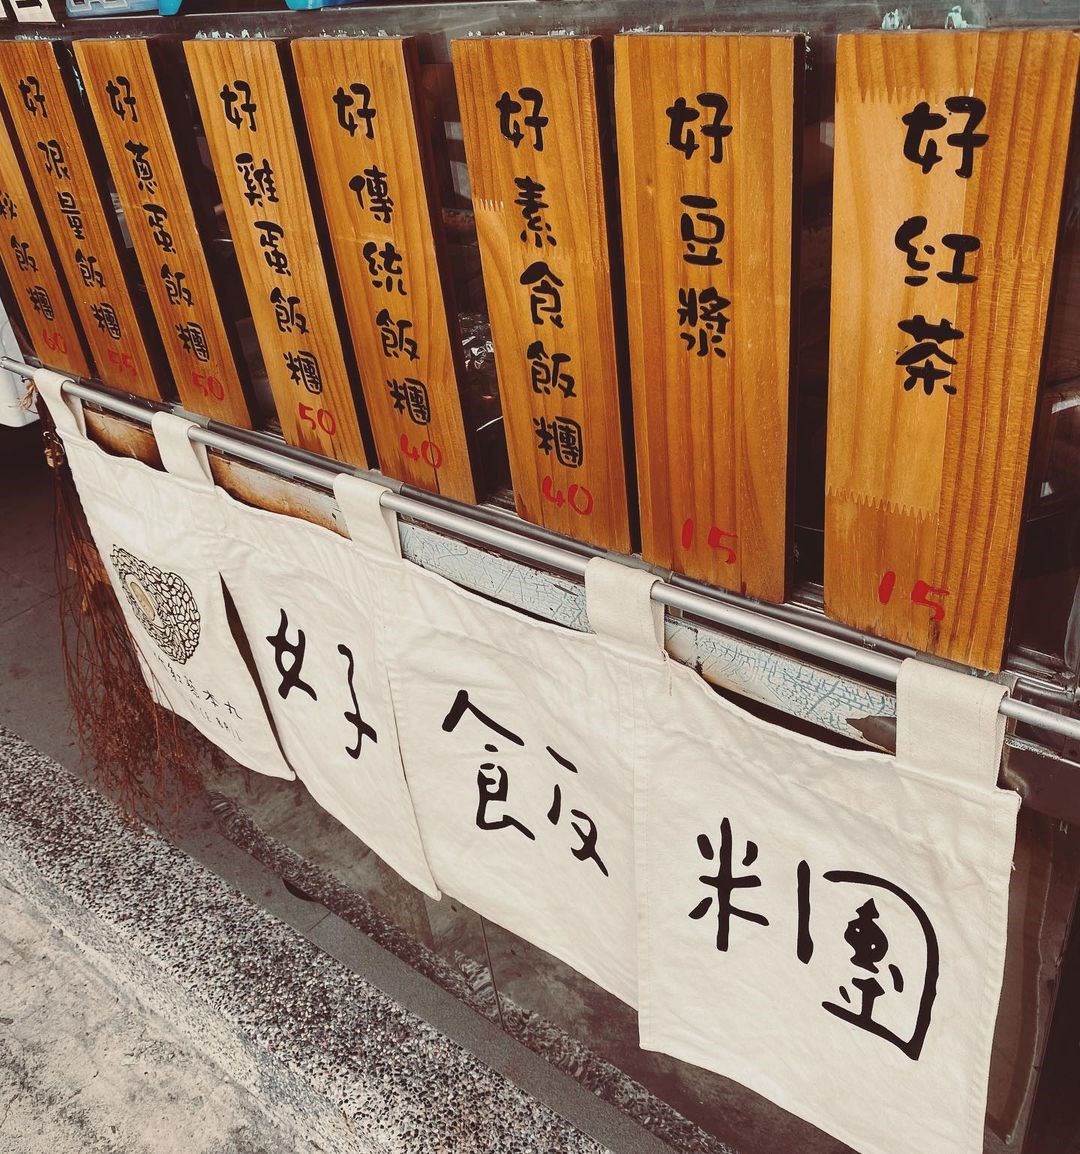 好紅茶 15
好豆漿 15
好素食飯糰 40
好傳統飯糰 40
好雞蛋飯糰 50
好蔥蛋飯糰 50
好限量飯糰 55
飯糰 60
好飯糰